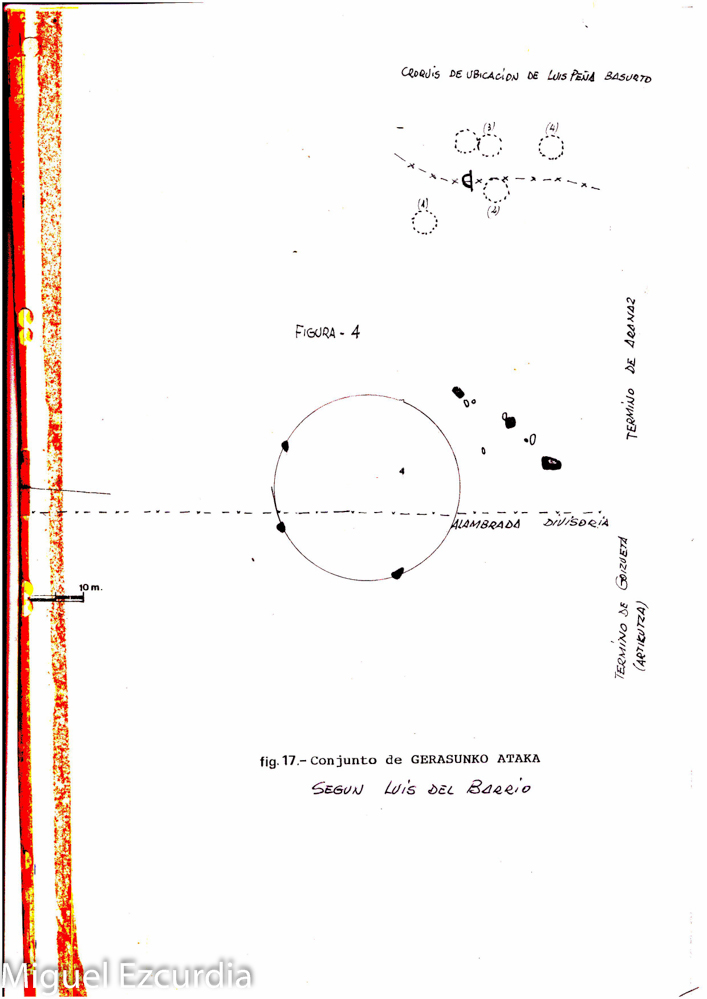 CROQUIS DE UBICACION DE LUIS PEÑA BASURTO
(3)
(4)
(4)
FIGURA - 4
TERMINO DE ARANAZ
4
ALAMBRADA DIVISORIA
10 m.
TERMINO DE GOIZUETA
(ARTIKUTZA)
fig.17.- Conjunto de GERASUNKO ATAKA
SEGUN LUIS DEL BARRIO
Miguel Ezcurdia